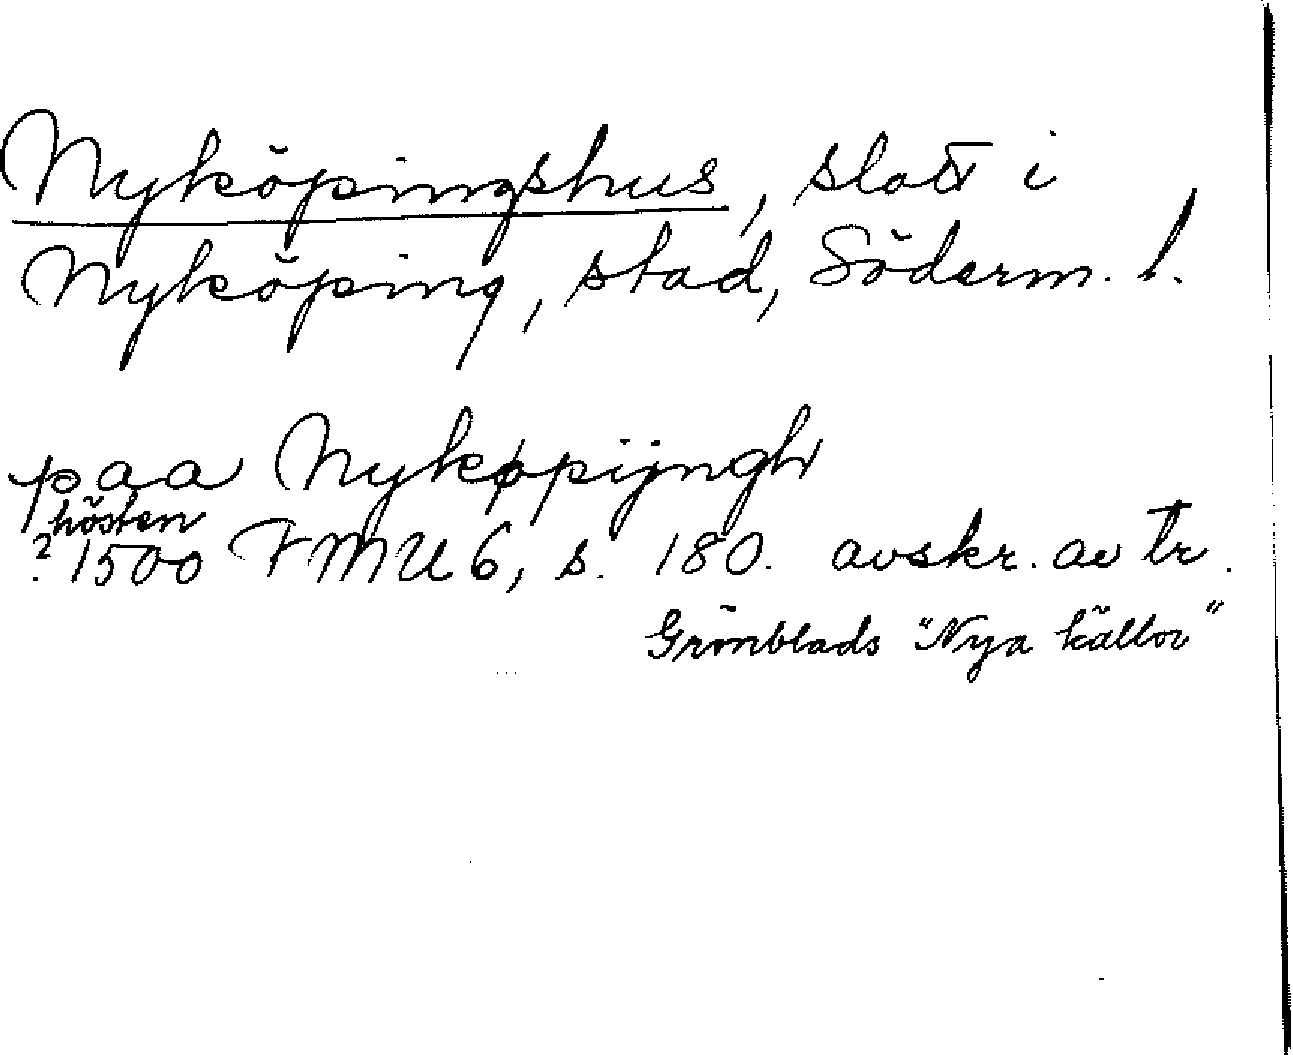 Nyköpingshus, slott i
Nyköping, stad, Söderm. l.
paa Nykøpijngh
hösten
? 1500 FMU 6, s. 180. avskr. av tr.
Grönblads "Nya källor"